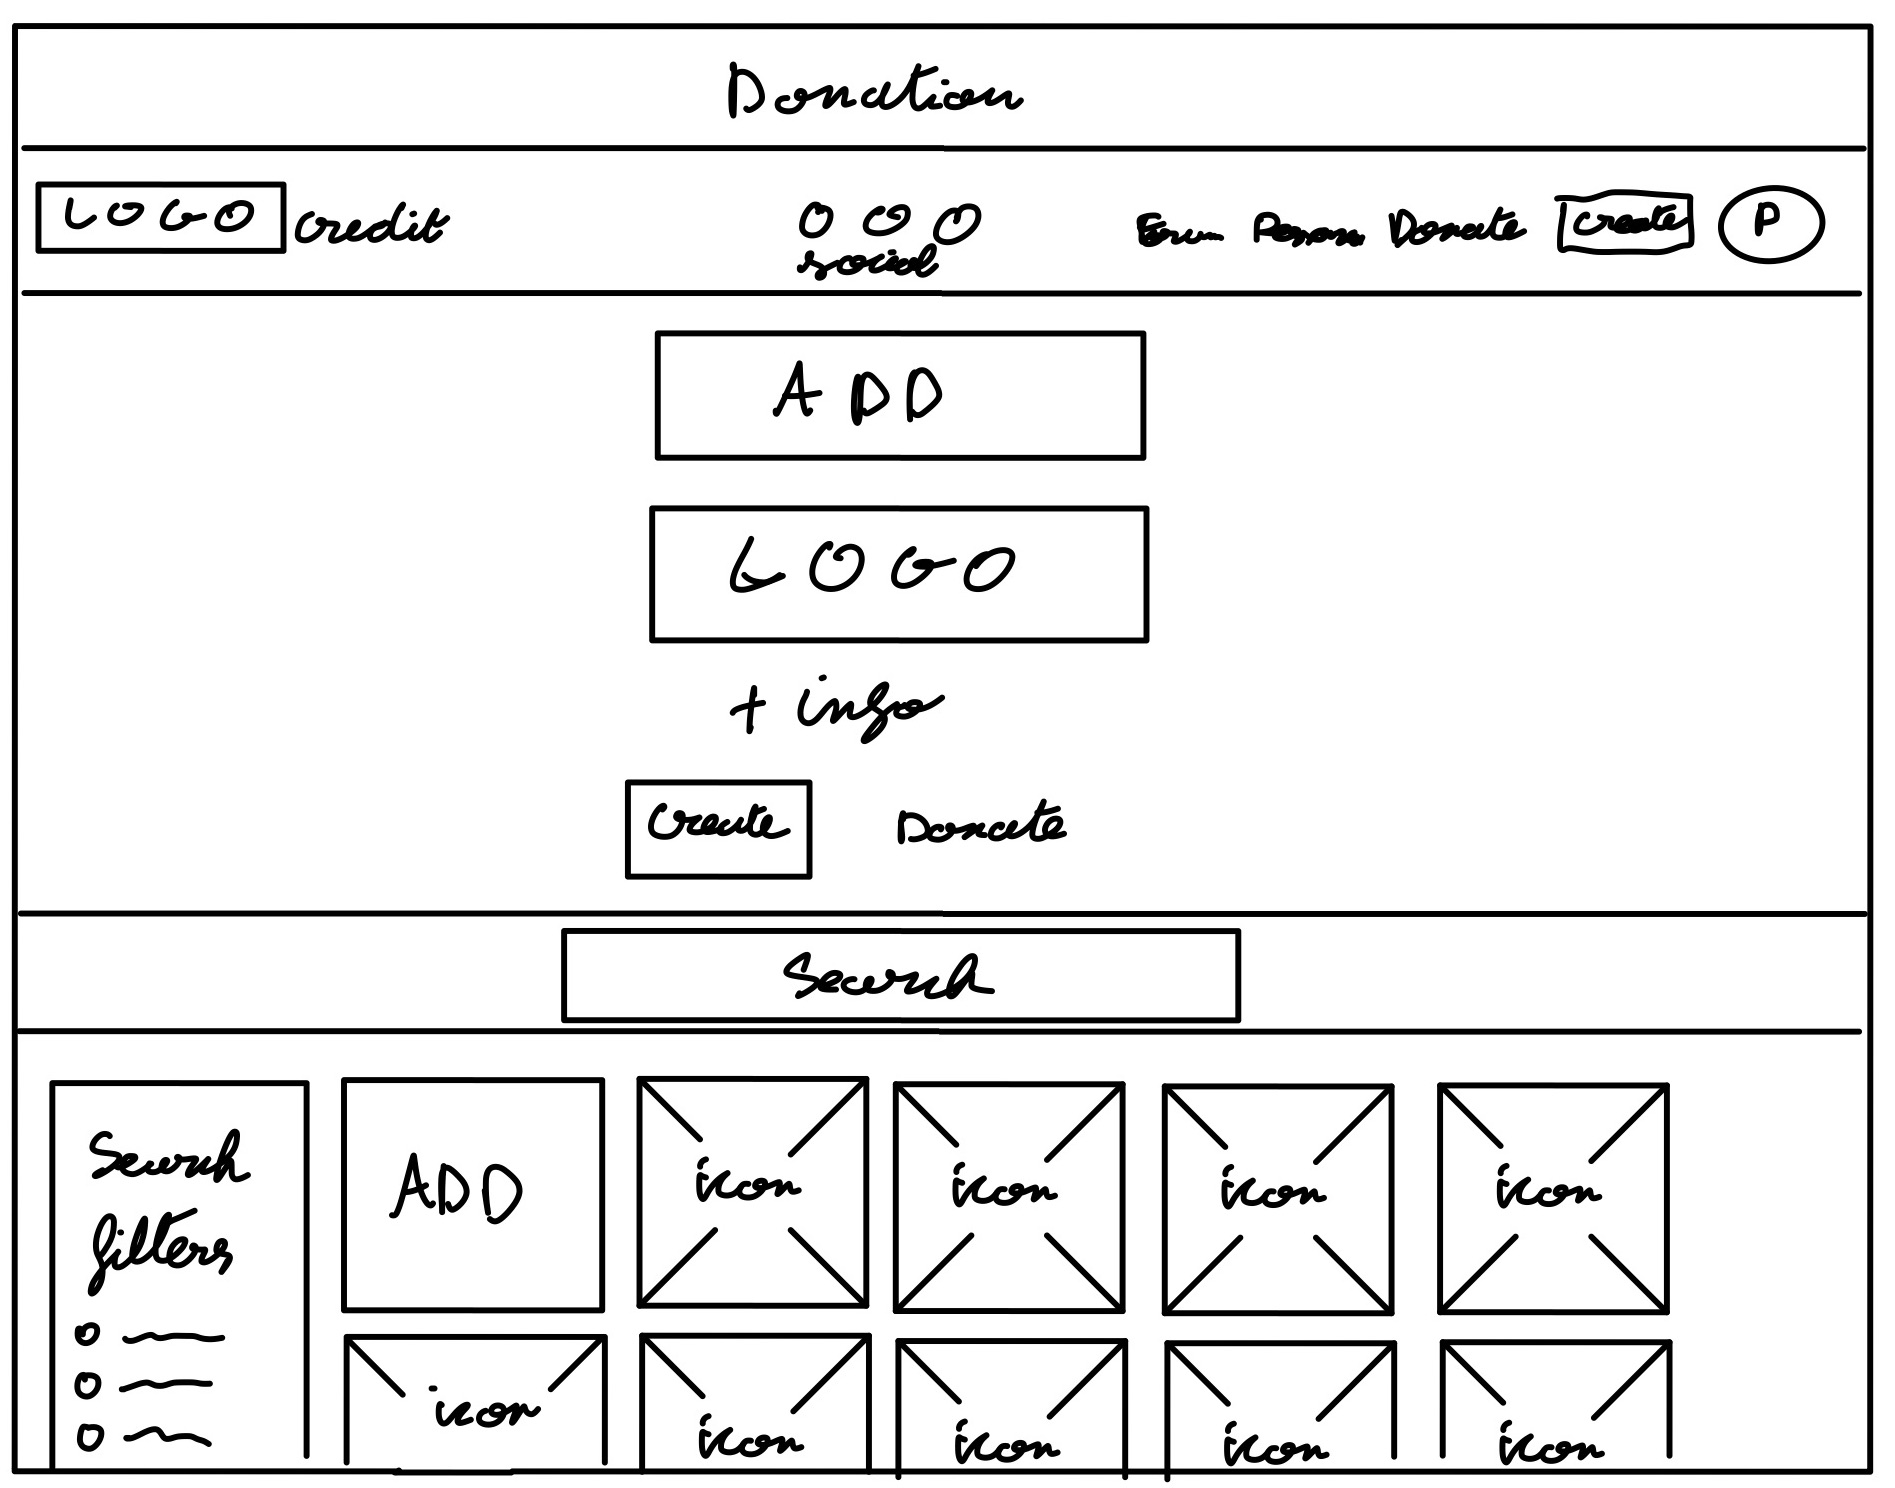 Donation
LOGO credit
social
Forum Donate Create P
ADD
LOGO
+ info
Create Donate
Search
Search
filters
ADD icon icon icon icon
icon icon icon icon icon